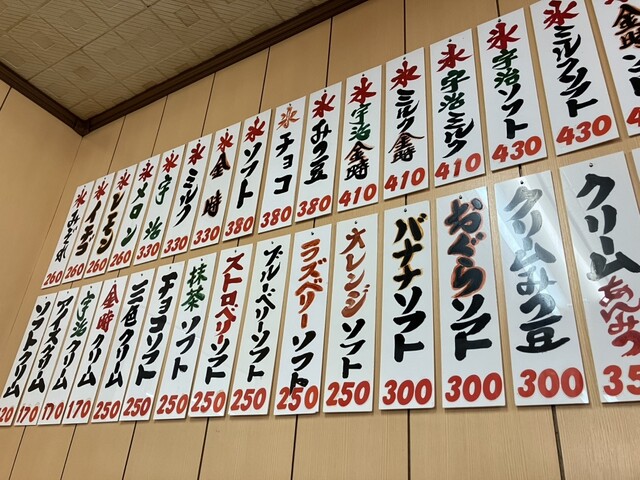 氷みぞれ 260
氷イチゴ 260
氷レモン 260
氷メロン 260
氷宇治 330
氷ミルク 330
氷金時 330
氷ソフト 380
氷チョコ 380
氷みつ豆 380
氷宇治金時 410
氷ミルク金時 410
氷宇治ミルク 410
氷宇治ソフト 430
氷ミルクソフト 430
金時
ソフトクリーム 120
アイスクリーム 170
宇治クリーム 170
金時クリーム 170
三色クリーム 250
チョコソフト 250
抹茶ソフト 250
ストロベリーソフト 250
ブルーベリーソフト 250
ラズベリーソフト 250
オレンジソフト 250
バナナソフト 300
おぐらソフト 300
クリームみつ豆 300
クリームあんみつ 35